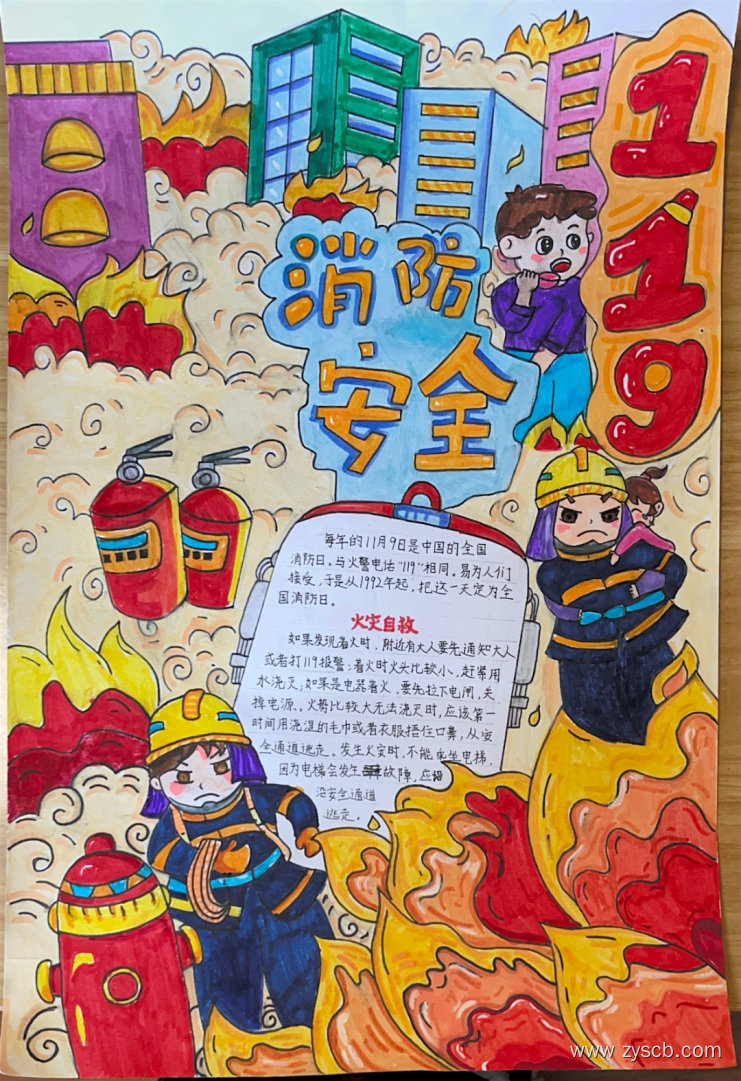 119
消防
安全
每年的11月9日是中国的全国
消防日。与火警电话"119"相同。易为人们
接受,于是从1992年起,把这一天定为全
国消防日。
火灾自救
如果发现着火时,附近有大人要先通知大人
或者打119报警;着火时火头比较小,赶紧用
水浇灭;如果是电器着火,要先拉下电闸,关
掉电源。火势比较大无法浇灭时,应该第一
时间用浇湿的毛巾或者衣服捂住口鼻,从安
全通道逃走。发生火灾时,不能乘坐电梯,
因为电梯会发生故障,应
沿安全通道
逃走。
www.zyscb.com